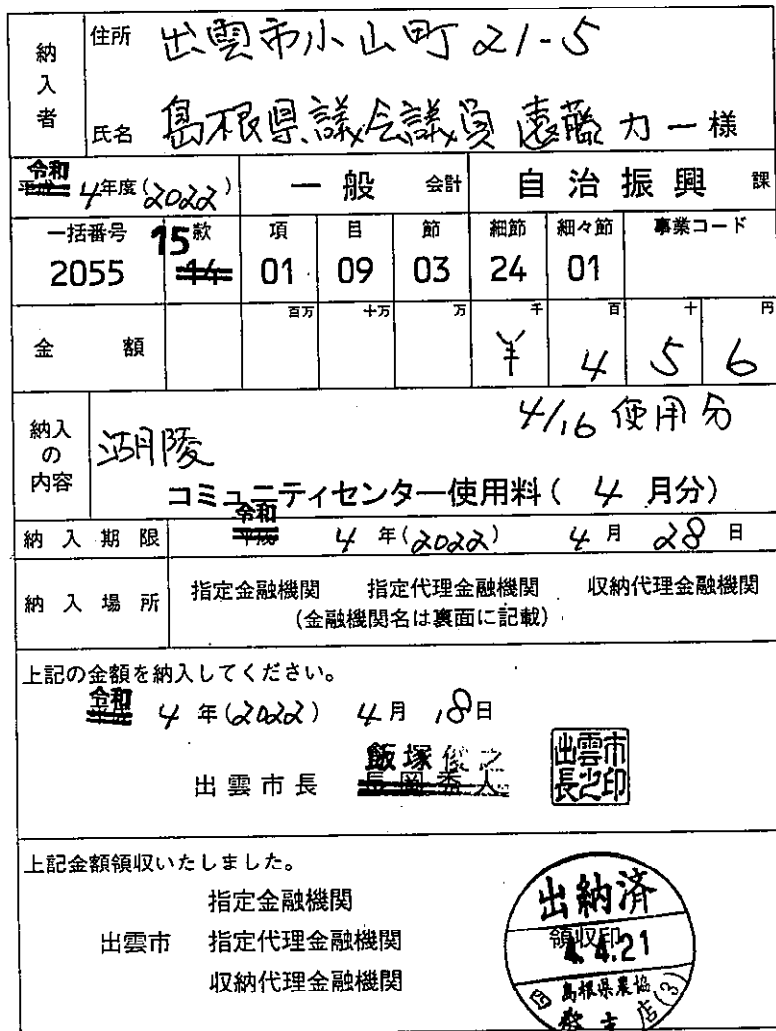 納入者
住所 出雲市小山町21-5
氏名 島根県議会議員 遠藤力一様
令和 平成 4年度(2022) 一般 会計 自治振興 課
一括番号 款 項 目 節 細節 細々節 事業コード
2055 15 14 01 09 03 24 01
百万 十万 万 千 百 十 円
金額 ¥ 4 5 6
納入の内容
4/16 使用分
湖陵
コミュニティセンター使用料( 4 月分)
納入期限 令和 平成 4 年(2022) 4 月 28 日
納入場所 指定金融機関 指定代理金融機関 収納代理金融機関
(金融機関名は裏面に記載)
上記の金額を納入してください。
令和 平成 4 年(2022) 4月 18日
出雲市長 飯塚俊之
長岡秀人
出雲市長之印
上記金額領収いたしました。
指定金融機関
出雲市 指定代理金融機関
収納代理金融機関
出納済
領収印
4.4.21
島根県農協
店(3)